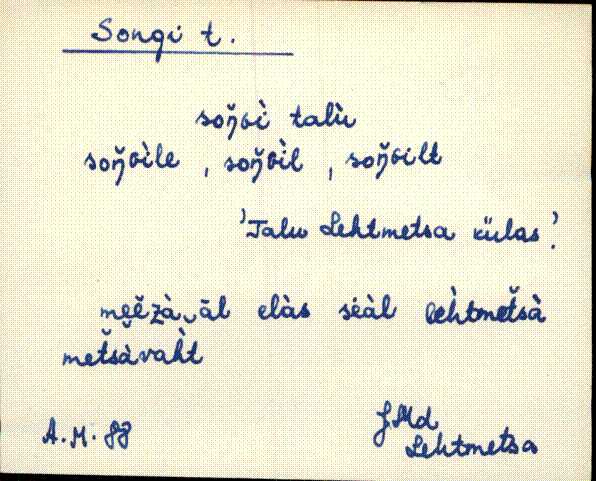 Songi t.
soŋ̆ɢì talù
soŋ̆ɢìle, soŋ̆ɢìl, soŋ̆ɢilt
'Talu Lehtmetsa külas'.
mẹĕzà‿āl elàs sèàl lèhtmet̆sà
met̆sàvaht
A.M. 88
JMd
Lehtmetsa